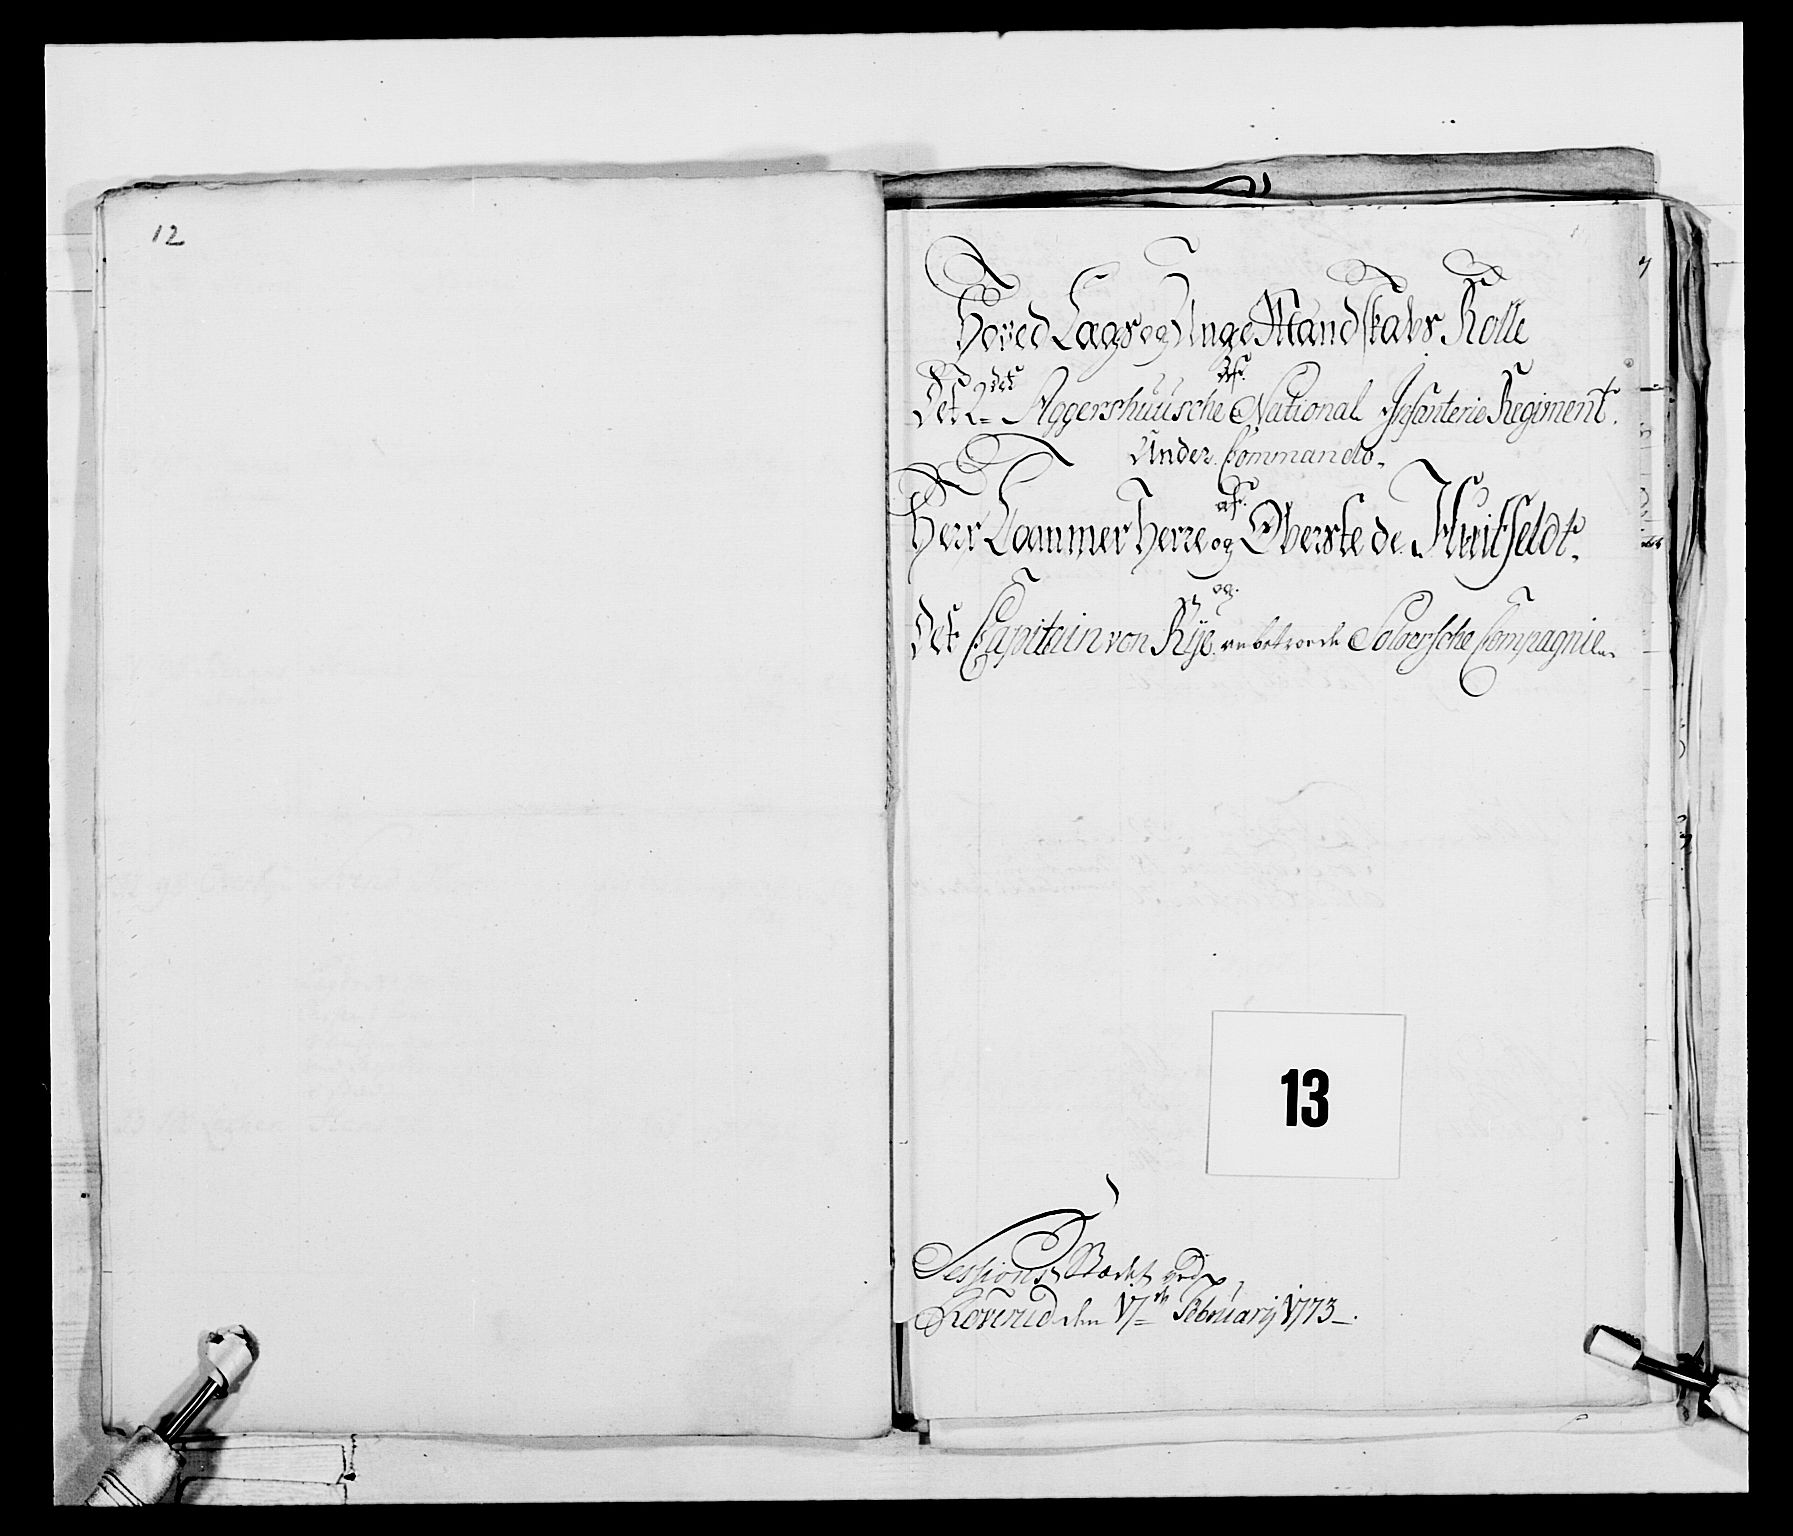 12
Hoved Lags og Unge Mandskabs Rolle
Af
Det 2det Aggershuusche National Infanterie Regiment.
Under Commando
af
Herr Cammer Herre og Oberste de Huitfeldt.
og
Det Capitain von Rÿe anbetroede Soloersche Compagnie.
13
Sessions Rætt ved
Koverud den 17de Februarÿ 1773.